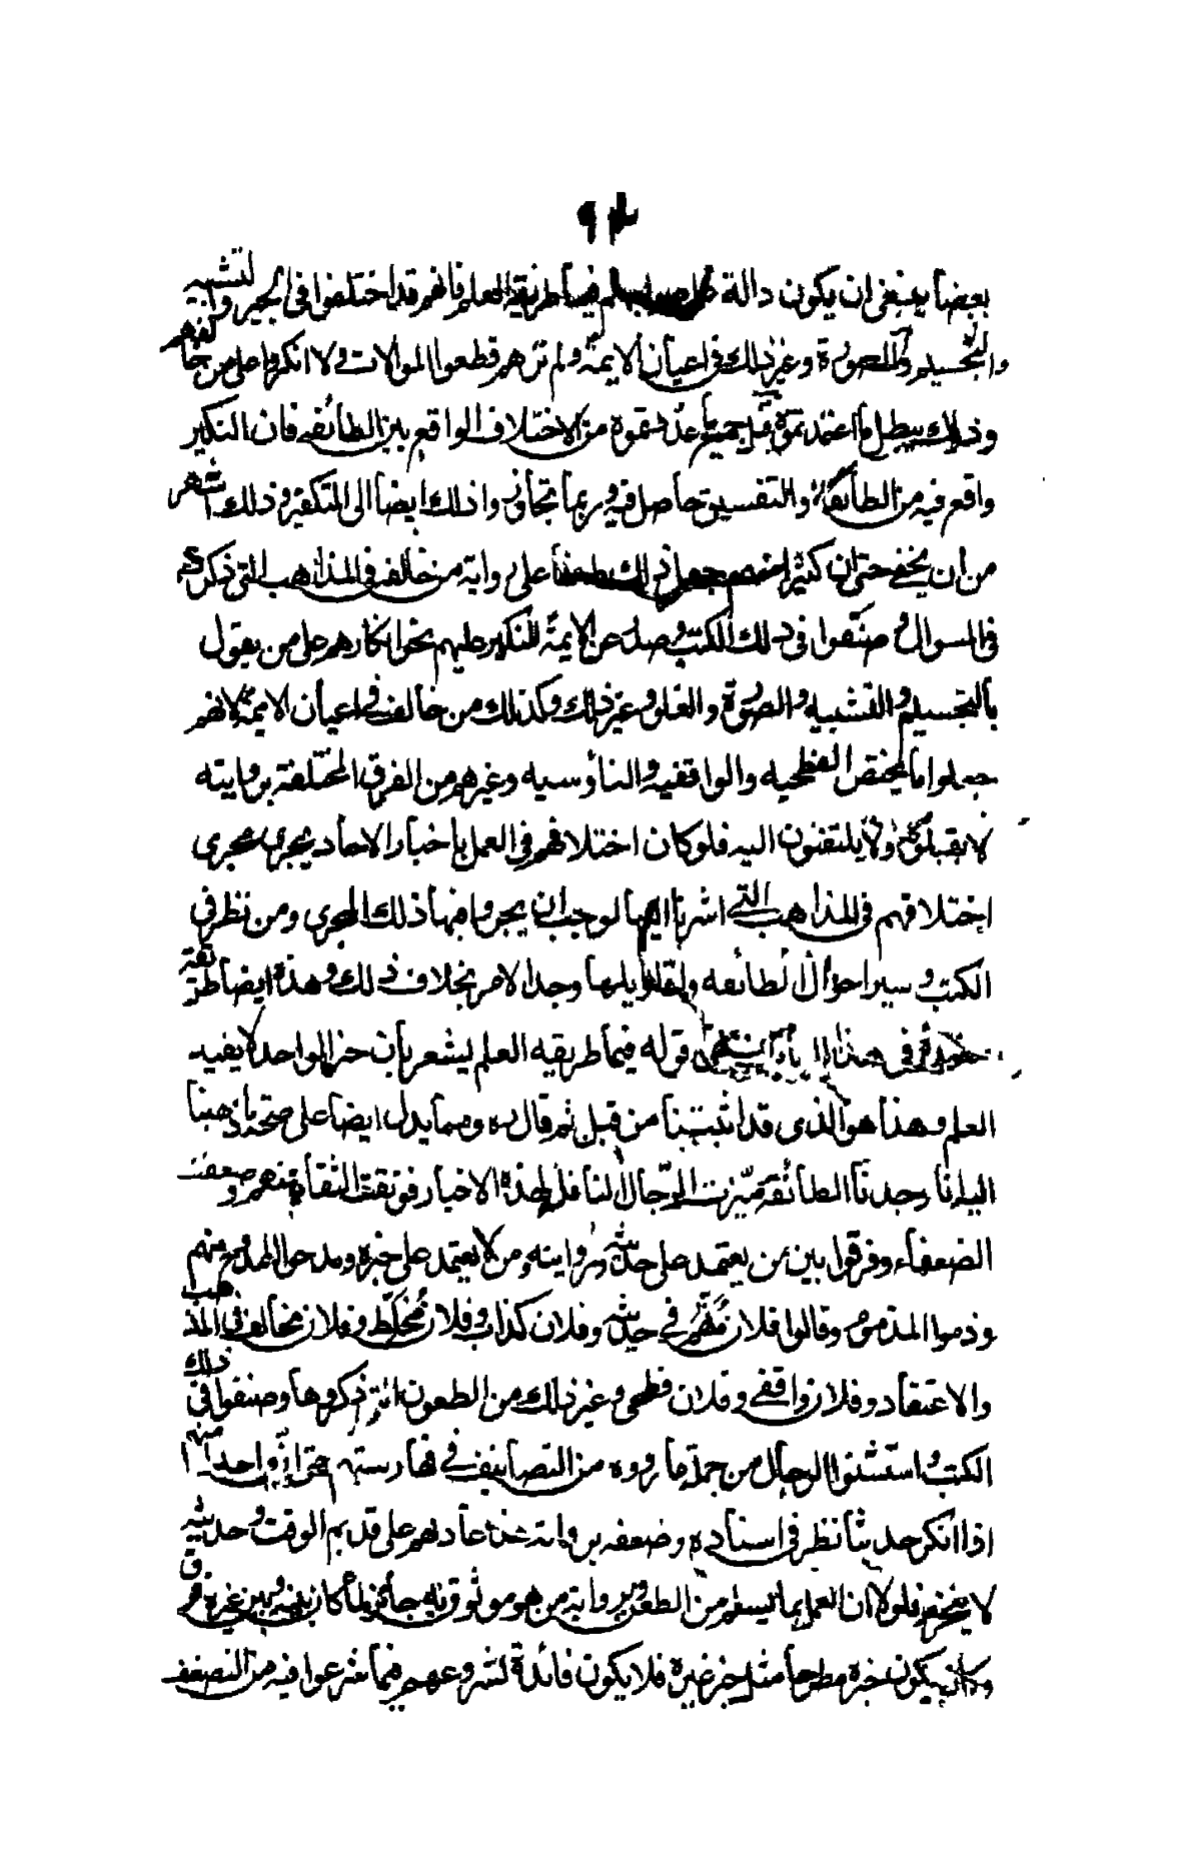 ٩٤
بعضا ينبغى ان يكون دالة على صوابهم فيما طريقه العلم فانهم قد اختلفوا فى الجبر والتشبيه
والتجسيم والصورة وغير ذلك وفى اعيان الائمة ولم نرهم قطعوا الموالات ولا انكروا على من خالفهم
وذلك يبطل ما اعتمدتموه قيل جميع ما عددتموه من الاختلاف الواقع بين الطائفه فان النكير
واقع فيه من الطائفة والتفسيق حاصل فيه وربما تجاوزوا ذلك ايضا الى التكفير وذلك اشهر
من ان يخفى حتى ان كثيرا منهم جعل ذلك طعنا على رواية من خالفه فى المذاهب التى ذكرت
فى السوال وصنفوا فى ذلك الكتب وصدر عن الائمة النكير عليهم نحو انكارهم على من يقول
بالتجسيم والتشبيه والصورة والغلو وغير ذلك وكذلك من خالف فى اعيان الائمة لانهم
جعلوا ما يختص الفطحيه والواقفيه والناوسيه وغيرهم من الفرق المختلفة بروايته
لا يقبلونه ولا يلتفتون اليه فلو كان اختلافهم فى العمل باخبار الاحاد يجرى مجرى
اختلافهم فى المذاهب التى اشرنا اليها لوجب ان يجروا فيها ذلك المجرى ومن نظر فى
الكتب وسبر احوال الطائفه واقاويلها وجد الامر بخلاف ذلك وهذه ايضا طريقة
فى هذا قوله فيما طريقه العلم ليشعر بان خبر الواحد لا يفيد
العلم وهذا هو الذى قد اثبتنا من قبل ثم قال ره ومما يدل ايضا على صحة ما ذهبنا
اليه انا وجدنا الطائفة ميّزت الرّجال الناقلة لهذه الاخبار فوثقت الثقاة منهم وضعفت
الضعفاء وفرقوا بين من يعتمد على حديثه وروايته ومن لا يعتمد على خبره ومدحوا الممدوح منهم
وذموا المذموم وقالوا فلان مُتَّهم فى حديثه وفلان كذاب وفلان مُخَلِّط وفلان مخالف فى المذهب
والاعتقاد وفلان واقفى وفلان فطحى وغير ذلك من الطعون التى ذكروها وصنفوا فى ذلك
الكتب واستثنوا الرجال من جملة ما رووه من التصانيف فى فهارستهم حتى ان واحدا منهم
اذا انكر حديثا نظر فى اسناده وضعفه بروايته هذا عادتهم على قديم الوقت وحديثه
لا ينخرم فلولا ان العمل بما يسلم من الطعن ويرويه من هو موثوق به جائز لما كان بينه وبين غيره فرق
وكان يكون خبره مطرحا مثل خبر غيره فلا يكون فائدة لشروعهم فيما شرعوا فيه من التضعيف